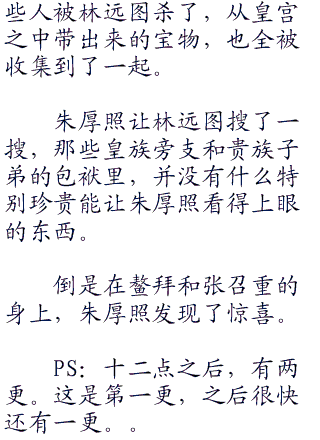 些人被林远图杀了，从皇宫
之中带出来的宝物，也全被
收集到了一起。
朱厚照让林远图搜了一
搜，那些皇族旁支和贵族子
弟的包袱里，并没有什么特
别珍贵能让朱厚照看得上眼
的东西。
倒是在鳌拜和张召重的
身上，朱厚照发现了惊喜。
PS：十二点之后，有两
更。这是第一更，之后很快
还有一更。。